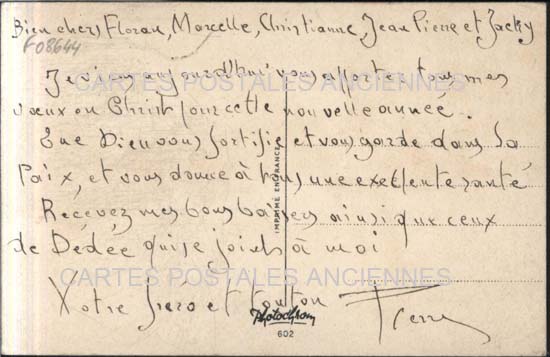 Bien chers Floran, Marcelle, Christianne, Jean Pierre et Jacky
F08644
Je viens aujourd'hui vous apporter tous mes
CARTES POSTALES ANCIENNES
vœux en Christ pour cette nouvelle année.
Que Dieu vous fortifie et vous garde dans Sa
Paix, et vous donne à tous une excellente santé
Recevez mes bons baisers ainsi que ceux
de Dédée qui se joint à moi
IMPRIMÉ EN FRANCE
CARTES POSTALES ANCIENNES
Votre frère et tonton Pierre
Photochrom
602